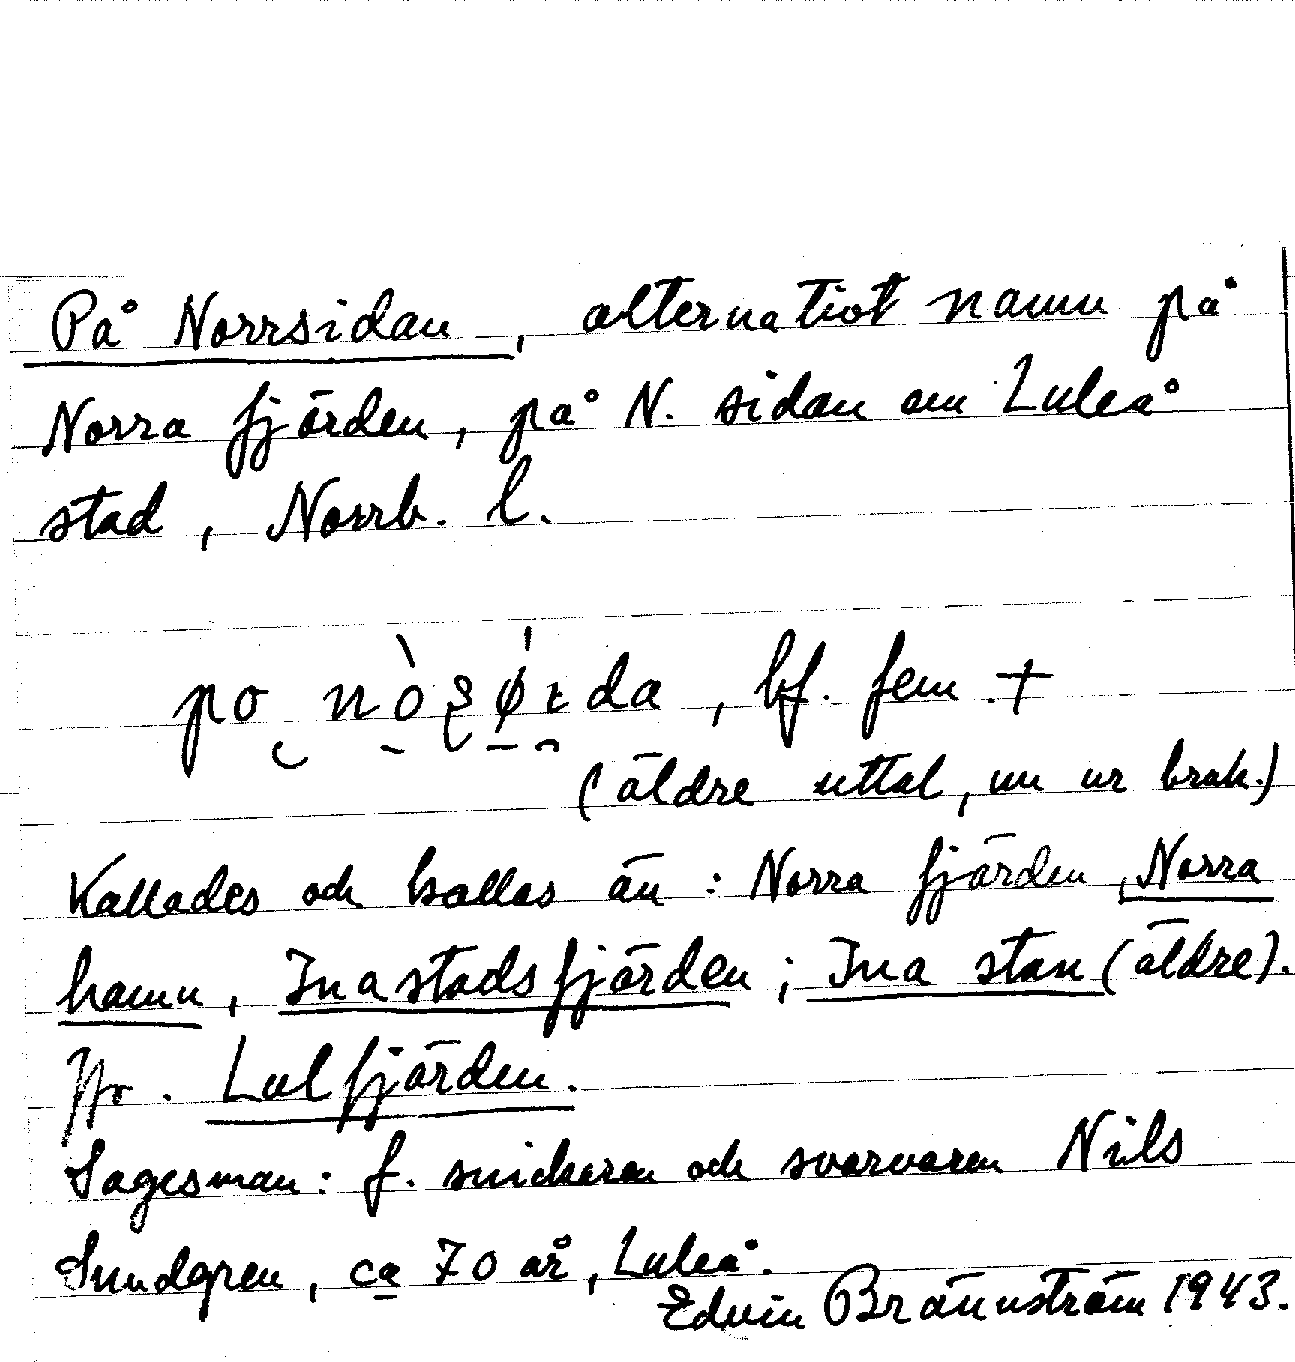 På Norrsidan, alternativt namn på
Norra fjärden, på N. sidan om Luleå
stad, Norrb. l.
bf. fem. +
(äldre uttal, nu ur bruk.)
Kallades och kallas än: Norra fjärden, Norra
hamn, Inastadsfjärden; Ina stan (äldre).
Jfr. Lulfjärden.
Sagesman: f. snickaren och svarvaren Nils
Sundgren, ca 70 år, Luleå.
Edvin Brännström 1943.